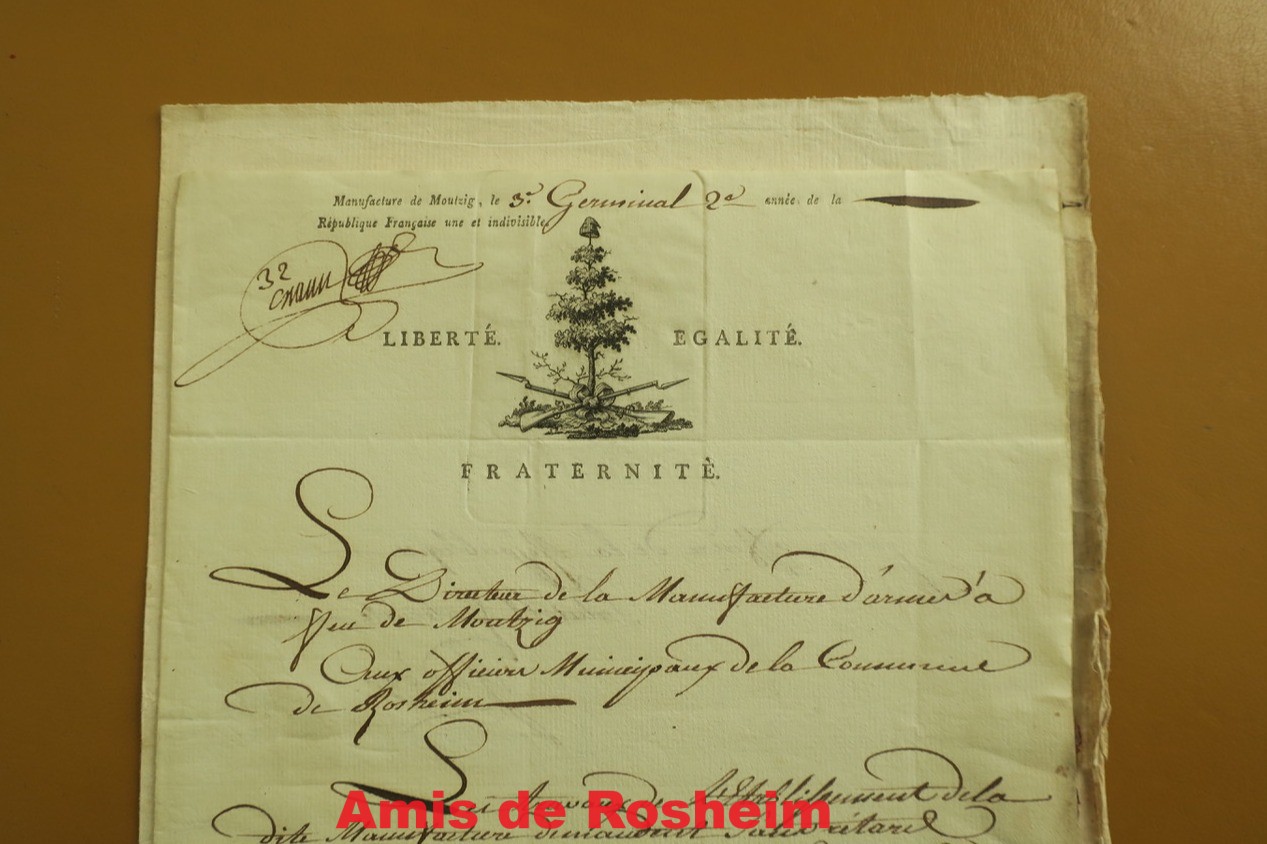 Manufacture de Moutzig, le 3.e Germinal 2e année de la
République Française une et indivisible.
32
LIBERTÉ. EGALITÉ.
FRATERNITÈ.
Le Directeur de la Manufacture d'armes à
feu de Moutzig
Aux officiers Municipaux de la Commune
de Rosheim
Les travaux de l'Etablissement de la
dite Manufacture demandent
Amis de Rosheim